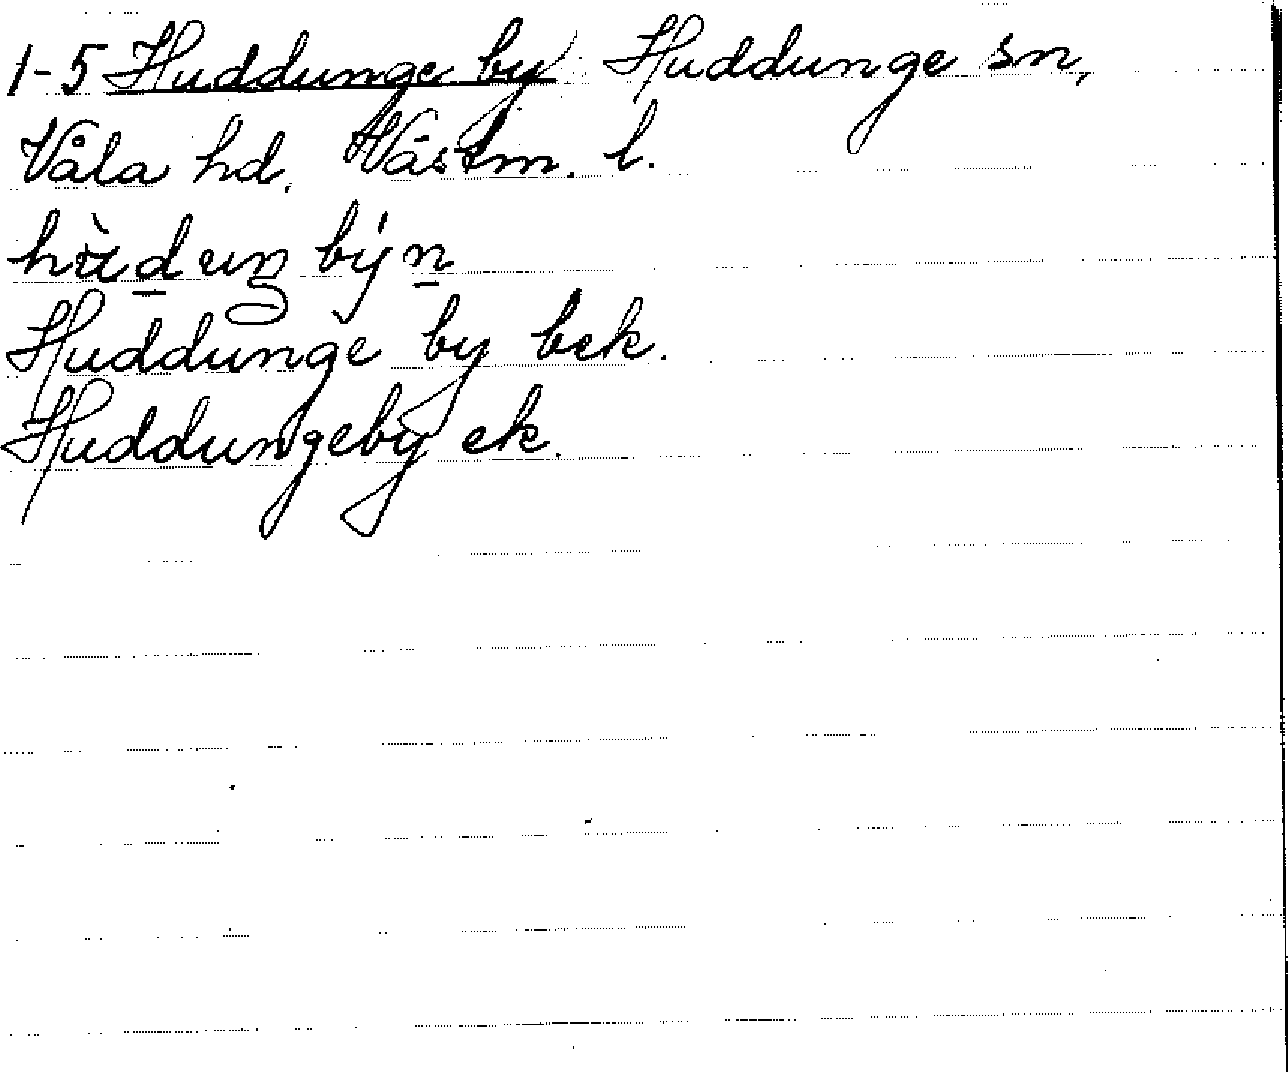 1-5 Huddunge by Huddunge sn,
Våla hd. Västm. l.
hùduŋ býn
Huddunge by bek.
Huddungeby ek.